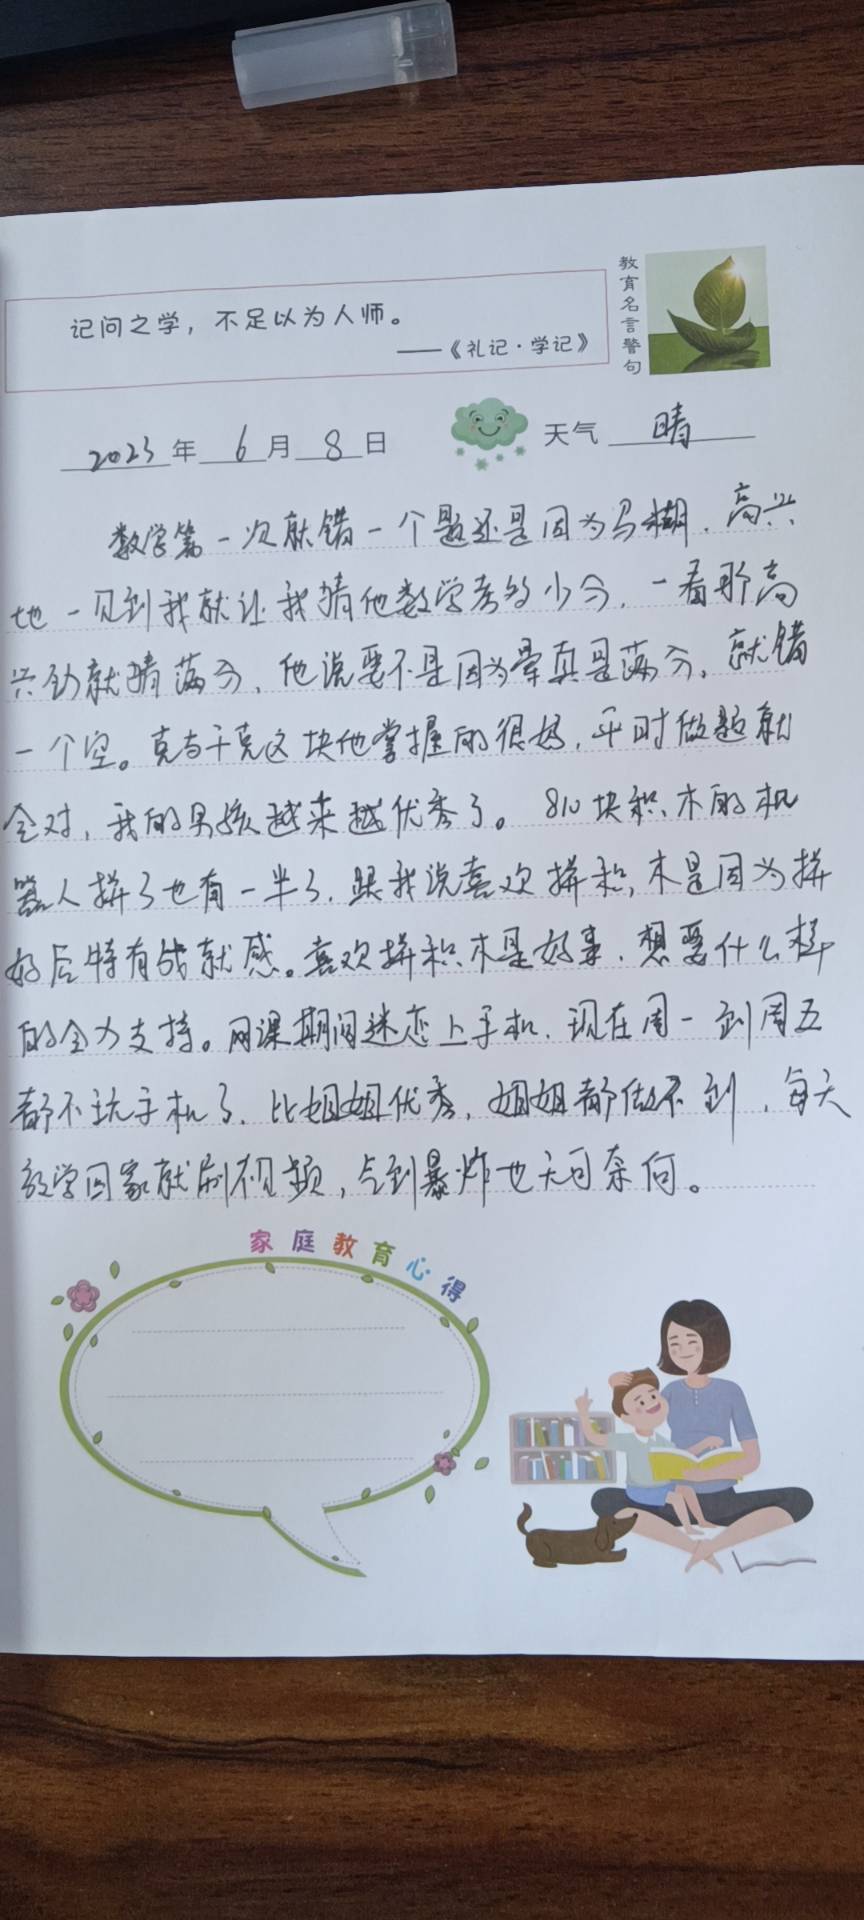 教育名言警句
记问之学，不足以为人师。
——《礼记·学记》
2023年6月8日 天气 晴
数学第一次就错一个题还是因为马糊，高兴
地一见到我就让我猜他数学考多少分，一看那高
兴劲就晴满分，他说要不是因为晕真是满分，就错
一个空。克与千克这块他掌握的很好，平时做题就
全对，我的男孩越来越优秀了。810块积木的机
器人拼了也有一半了，跟我说喜欢拼积木是因为拼
好后特有成就感。喜欢拼积木是好事，想要什么样
的全力支持。网课期间迷恋上手机，现在周一到周五
都不玩手机了，比姐姐优秀，姐姐都做不到，每天
放学回家就刷视频，气到暴炸也无可奈何。
家庭教育心得